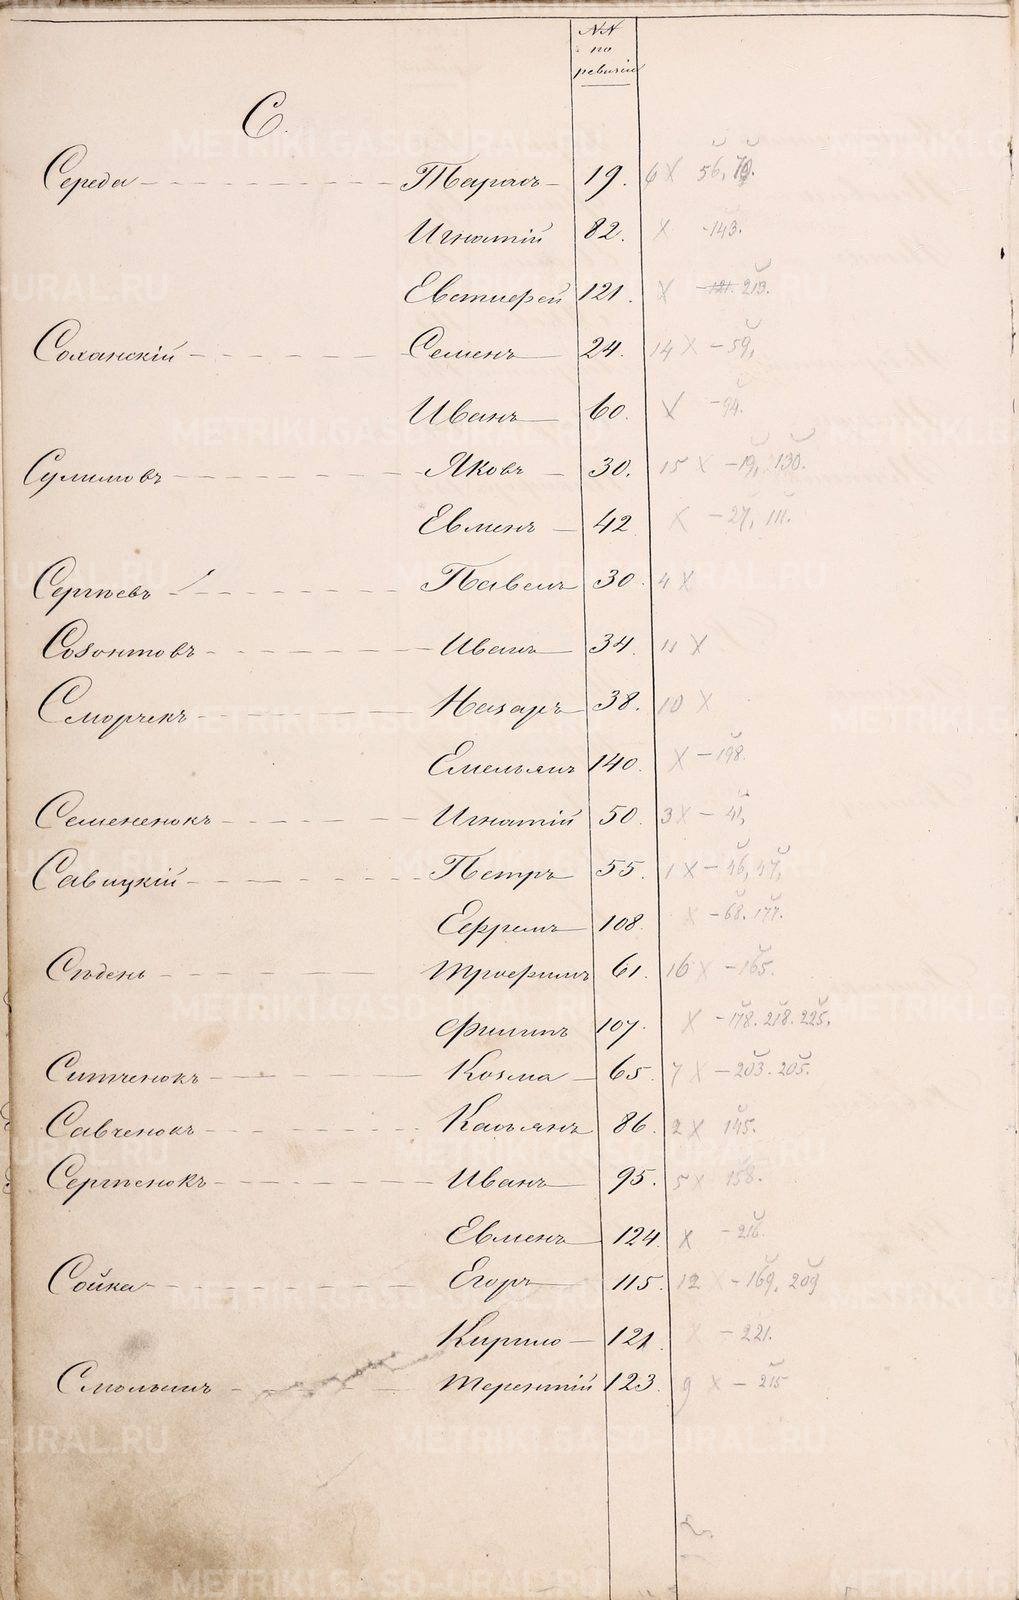 NN
по
ревизіи
С.
Середа Тарасъ 19. 6 X 56, 79.
Игнатій 82. X -143.
Евстиефей 121. X -121. 213.
Соханскій Семенъ 24. 14 X -59,
Иванъ 60. X -94.
Сулимовъ Яковъ 30. 15 X -19, 130.
Евменъ 42 X -27, 111.
Сергѣевъ Павелъ 30. 4 X
Созонтовъ Иванъ 34. 11 X
Сморчекъ Назаръ 38. 10 X
Емельянъ 140. X -198.
Семененокъ Игнатій 50. 3 X - 41,
Савицкій Петръ 55. 1 X -46, 47,
Ефремъ 108. X -68. 177.
Сѣдень Трофимъ 61. 16 X -165.
Филипъ 107. X -178. 218. 225.
Ситченокъ Козма 65. 7 X -203. 205.
Савченокъ Касьянъ 86. 2 X 145.
Сергѣенокъ Иванъ 95. 5 X 158.
Евменъ 124. X -216.
Сойка Егоръ 115. 12 X -169, 209
Кирило 121. X -221.
Смольшъ Терентій 123. 9 X - 215
METRIKI.GASO-URAL.RU